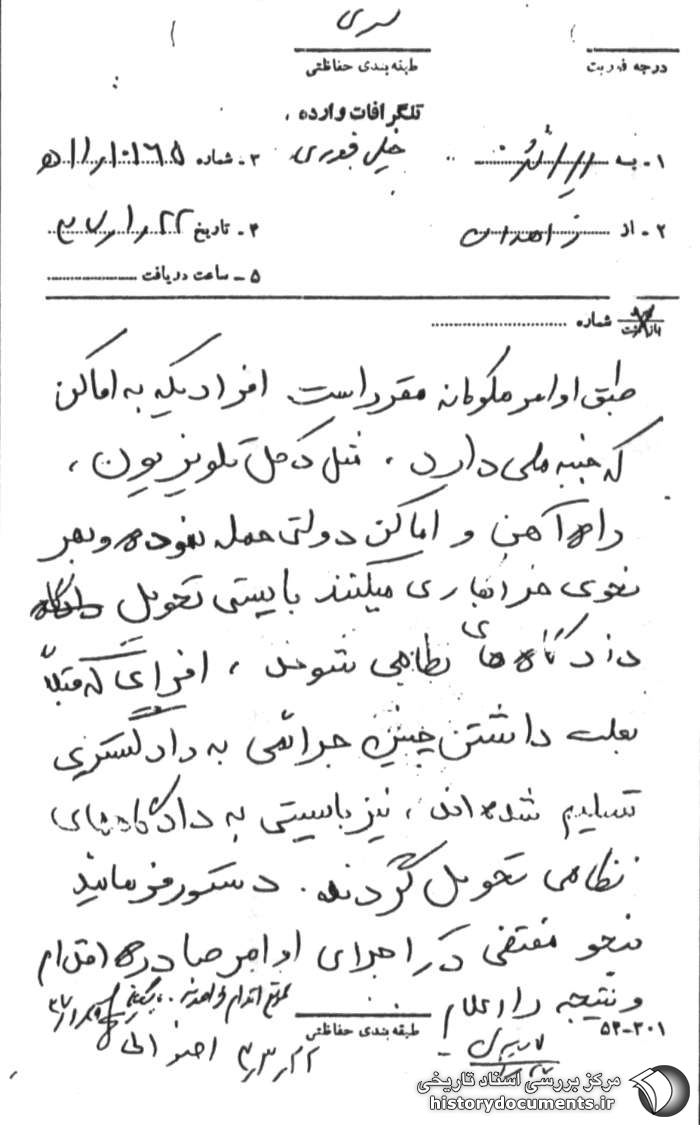 سری
درجه فوریت
طبقه بندی حفاظتی
تلگرافات وارده
۱ - به
خیلی فوری
۳ - شماره ۱۰۱۶۵ / ۱۱ ه
۲ - از زاهدان
۴ - تاریخ
۵ - ساعت دریافت
شماره
طبق اوامر ملوکانه مقرر است افرادیکه به اماکن
که جنبه ملی دارد ، مثل دکل تلویزیون ،
راه آهن و اماکن دولتی حمله نموده و بهر
نحوی خرابکاری میکنند بایستی تحویل دادگاه
دادگاه های نظامی شوند ، افرادی که قبلاً
بعلت داشتن چنین جرائمی به دادگستری
تسلیم شده اند ، نیز بایستی به دادگاههای
نظامی تحویل گردند . دستور فرمائید
بنحو مقتضی در اجرای اوامر صادره اقدام
و نتیجه را اعلام
طبقه بندی حفاظتی
۵۲-۳۰۱
مرکز بررسی اسناد تاریخی
historydocuments.ir